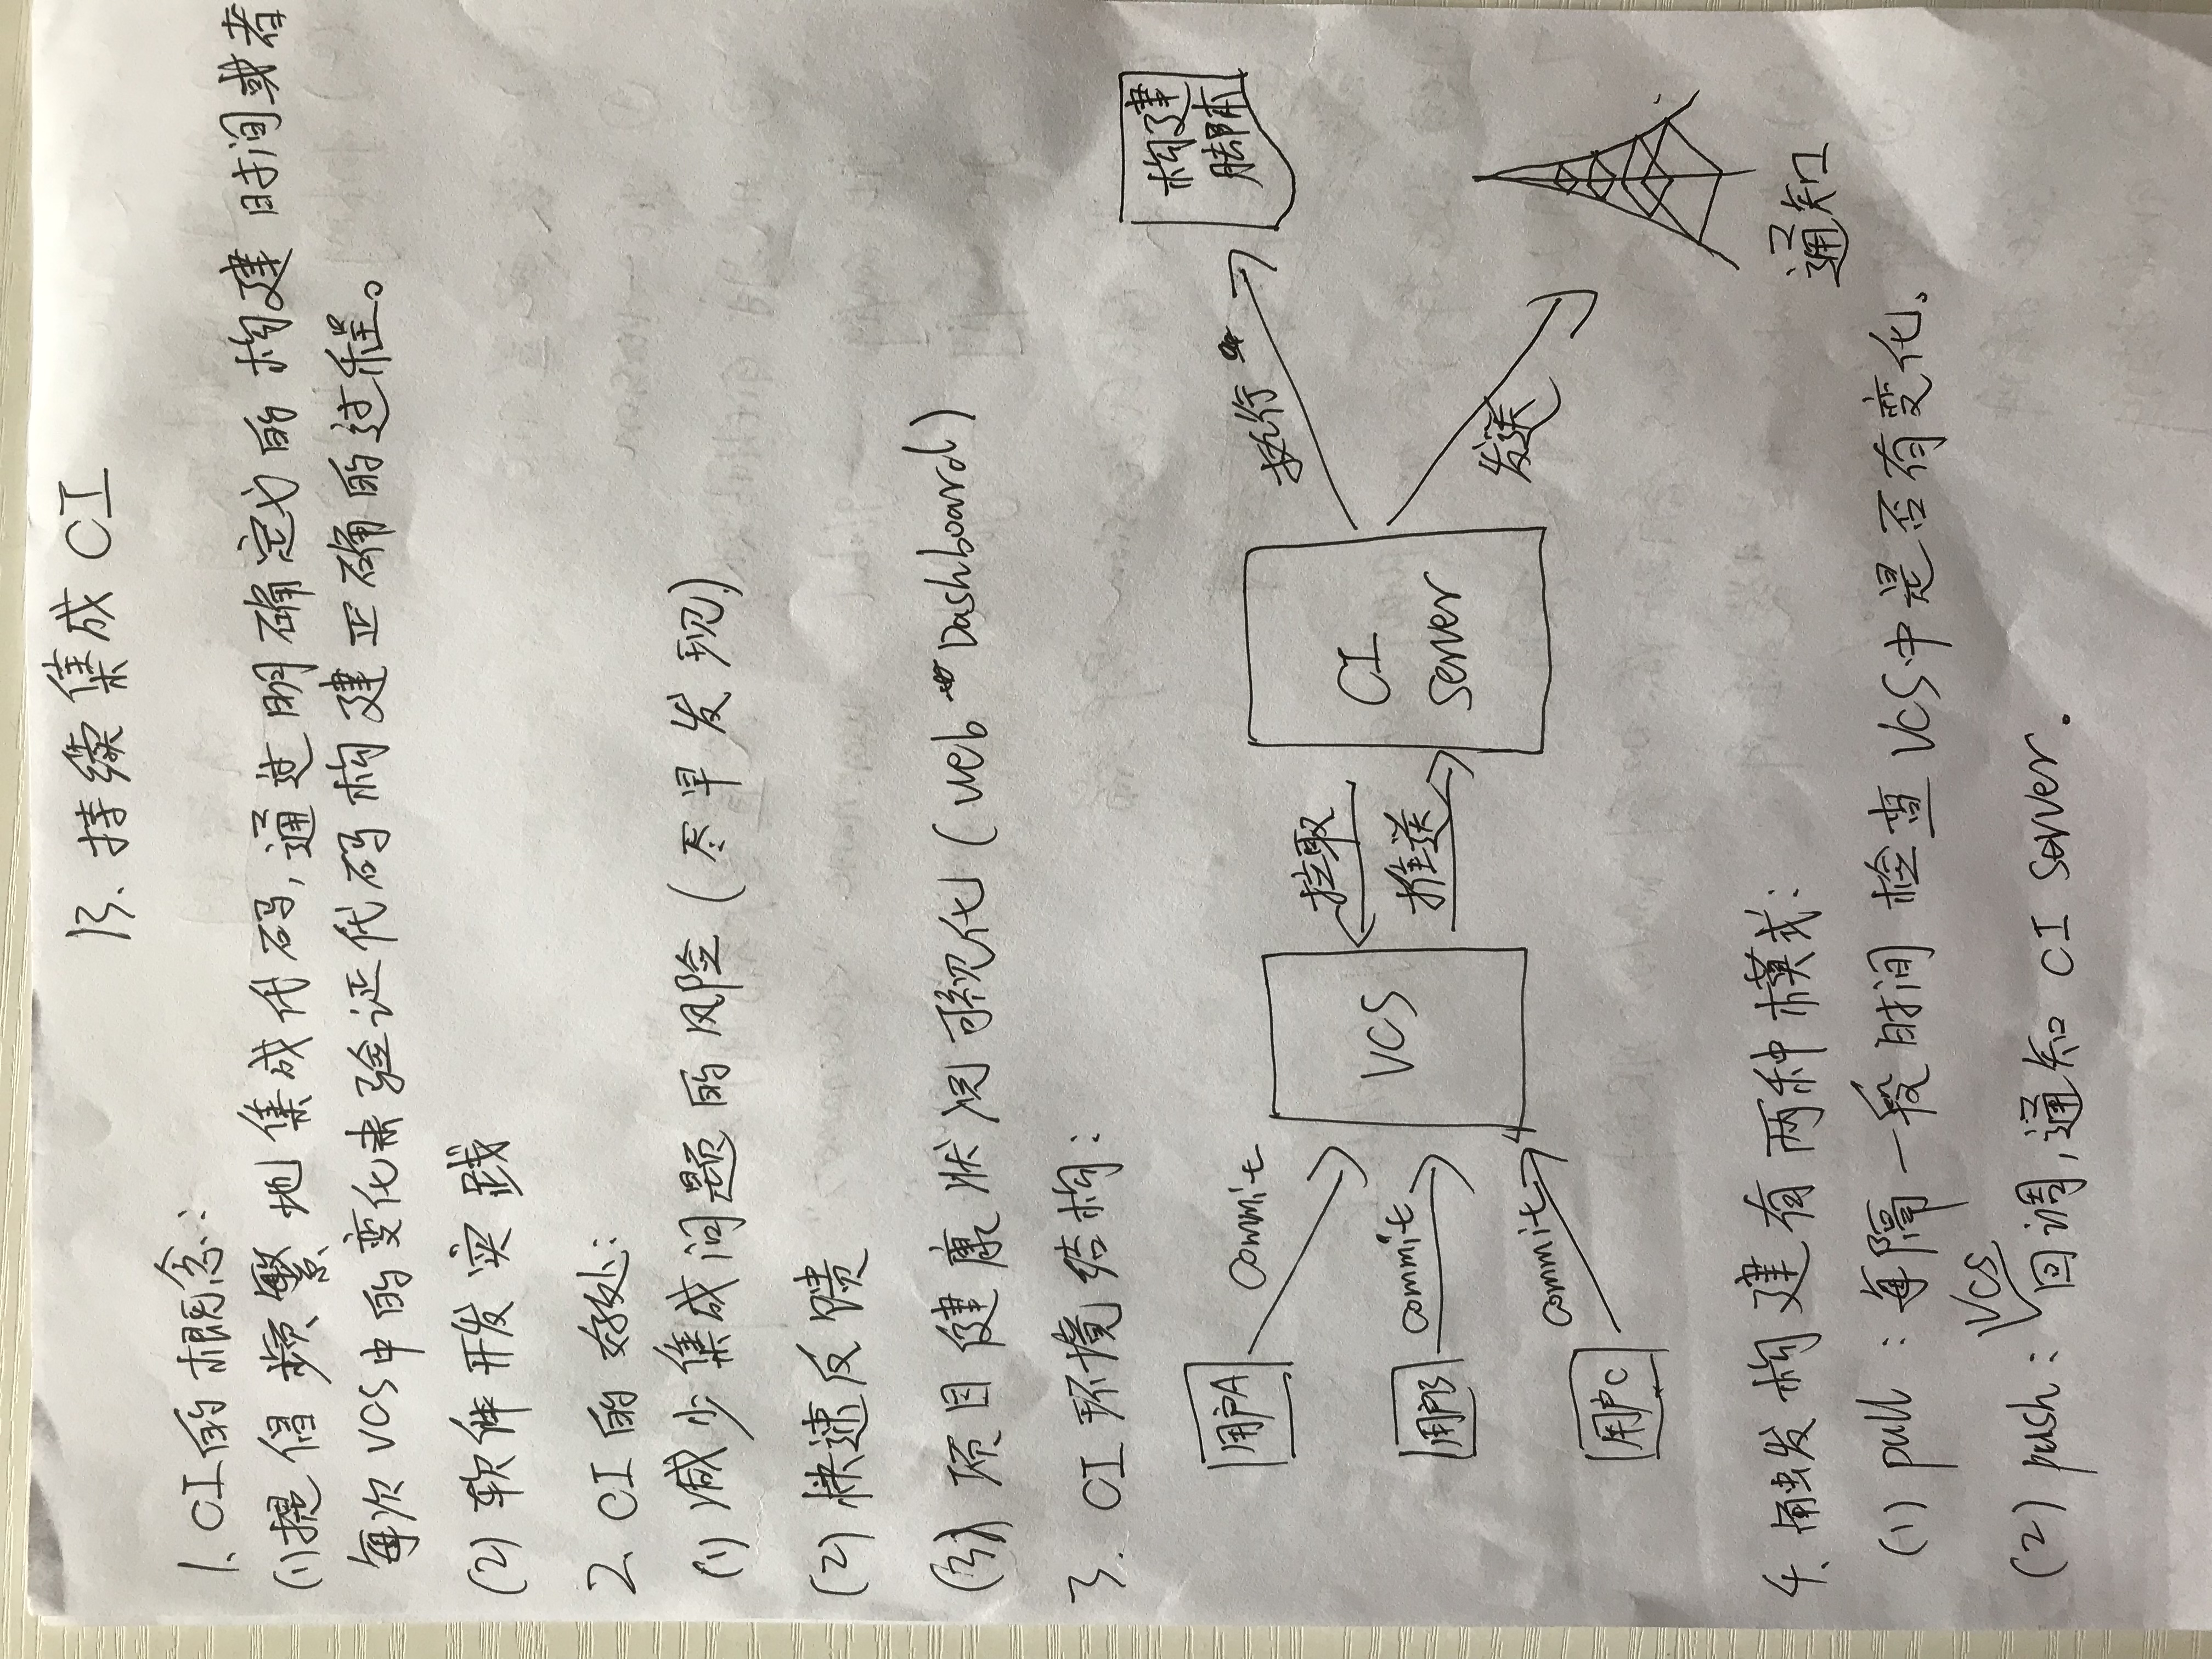 13. 持续集成 CI
1. CI的概念:
(1)提倡频繁地集成代码,通过明确定义的构建时间或者
每次VCS中的变化来验证代码构建正确的过程。
(2) 软件开发实践
2. CI的好处:
(1) 减少集成问题的风险(尽早发现)
(2) 快速反馈
(3) 项目健康状况可视化(web Dashboard)
3. CI环境结构:
构建
脚本
用户A
commit
执行
VCS
拉取
CI
server
用户B
commit
推送
发送
用户C
commit
通知
4. 触发构建有两种模式:
(1) pull : 每隔一段时间检查VCS中是否有变化。
(2) push: VCS回调,通知 CI server.